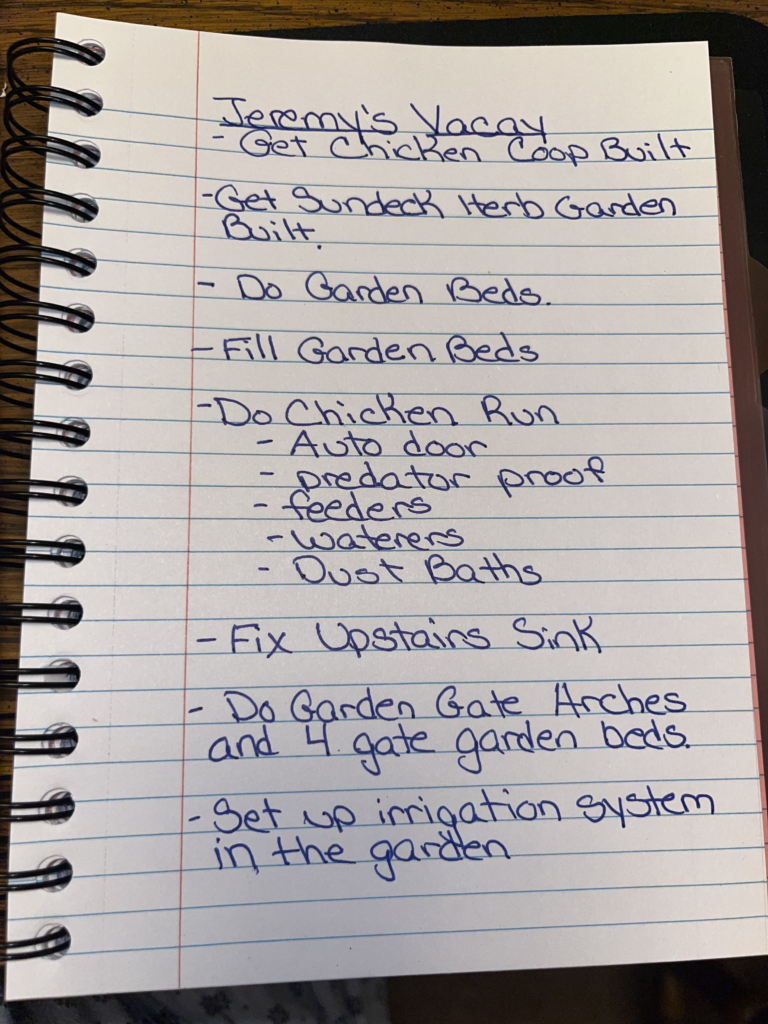 Jeremy's Vacay
- Get Chicken Coop Built
- Get Sundeck Herb Garden
Built.
- Do Garden Beds.
- Fill Garden Beds
- Do Chicken Run
- Auto door
- predator proof
- feeders
- waterers
- Dust Baths
- Fix Upstairs Sink
- Do Garden Gate Arches
and 4 gate garden beds.
- Set up irrigation system
in the garden